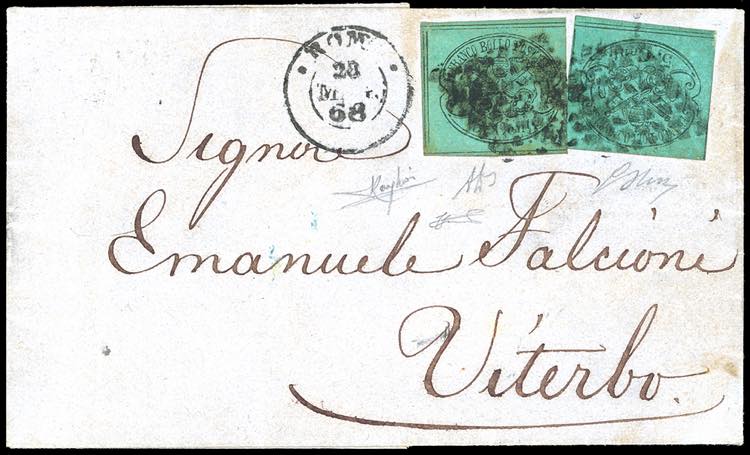 ROMA
23
68
FRANCO BOLLO POST
Signore
Emanuele Falcioni
Viterbo.